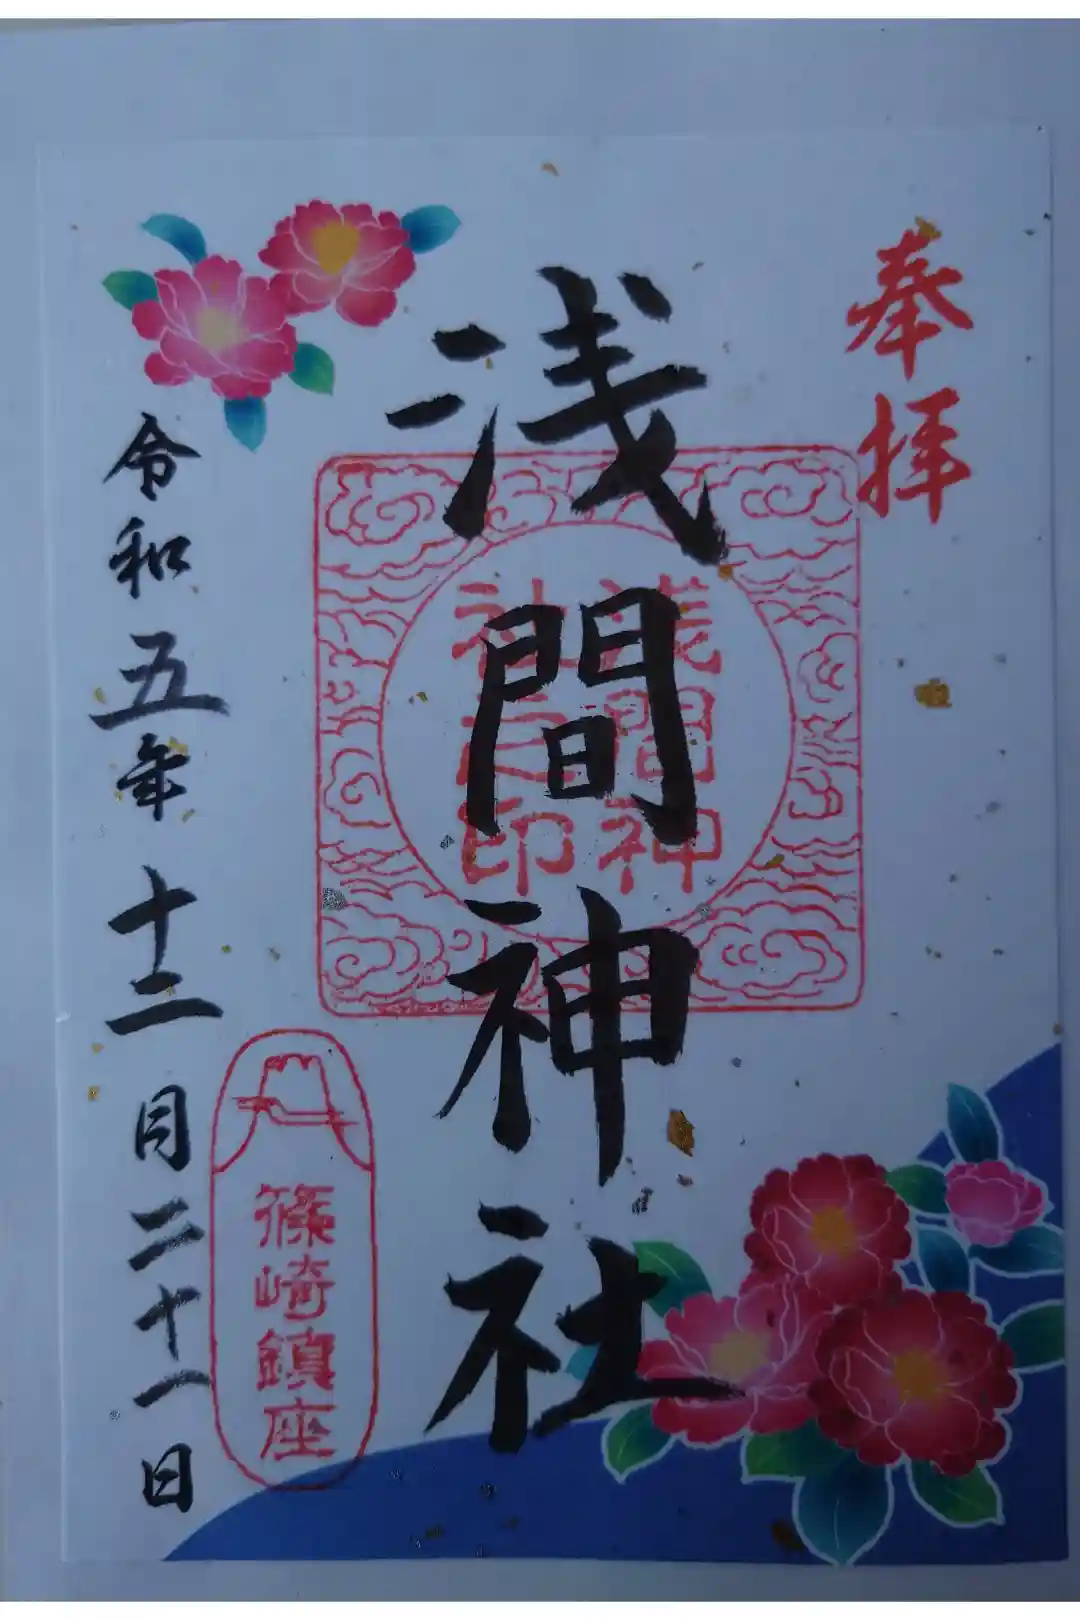 奉拝
浅間神社
浅間神
社之印
篠崎鎮座
令和五年十二月二十一日